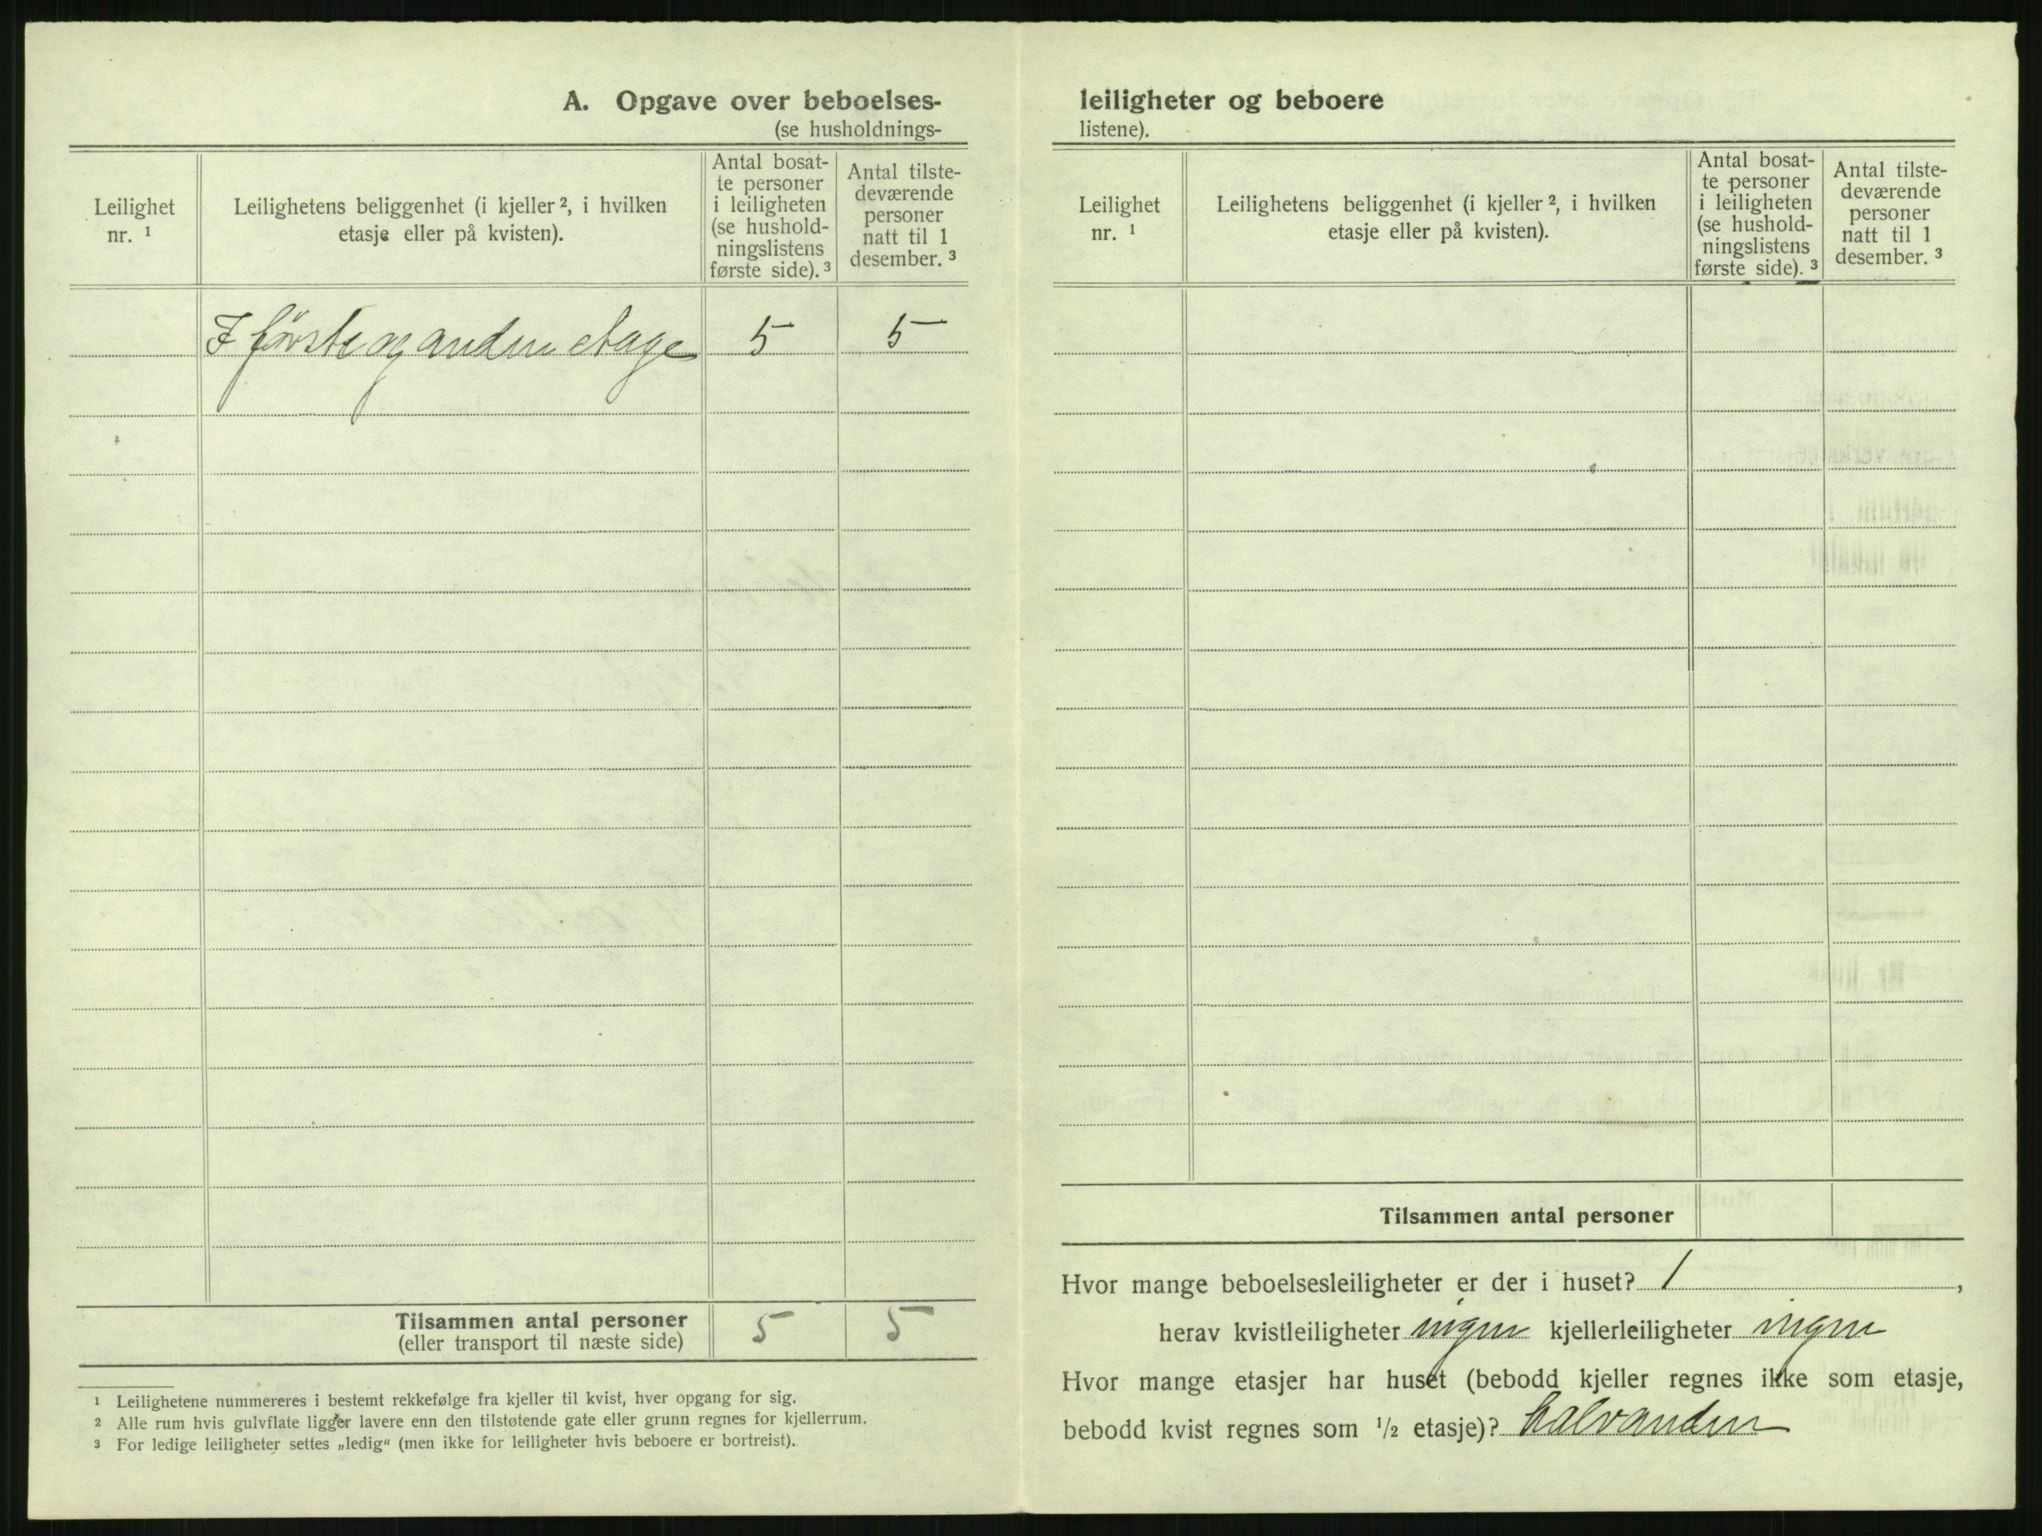 A. Opgave over beboelses-
(se husholdnings-
Leilighet
nr. ¹
Leilighetens beliggenhet (i kjeller ², i hvilken
etasje eller på kvisten).
Antal bosat-
te personer
i leiligheten
(se hushold-
ningslistens
første side). ³
Antal tilste-
deværende
personer
natt til 1
desember. ³
I første og anden etage 5 5
Tilsammen antal personer 5 5
(eller transport til næste side)
¹ Leilighetene nummereres i bestemt rekkefølge fra kjeller til kvist, hver opgang for sig.
² Alle rum hvis gulvflate ligger lavere enn den tilstøtende gate eller grunn regnes for kjellerrum.
³ For ledige leiligheter settes „ledig“ (men ikke for leiligheter hvis beboere er bortreist).
leiligheter og beboere
listene).
Leilighet
nr. ¹
Leilighetens beliggenhet (i kjeller ², i hvilken
etasje eller på kvisten).
Antal bosat-
te personer
i leiligheten
(se hushold-
ningslistens
første side). ³
Antal tilste-
deværende
personer
natt til 1
desember. ³
Tilsammen antal personer
Hvor mange beboelsesleiligheter er der i huset? 1,
herav kvistleiligheter ingen kjellerleiligheter ingen
Hvor mange etasjer har huset (bebodd kjeller regnes ikke som etasje,
bebodd kvist regnes som ½ etasje)? halvanden